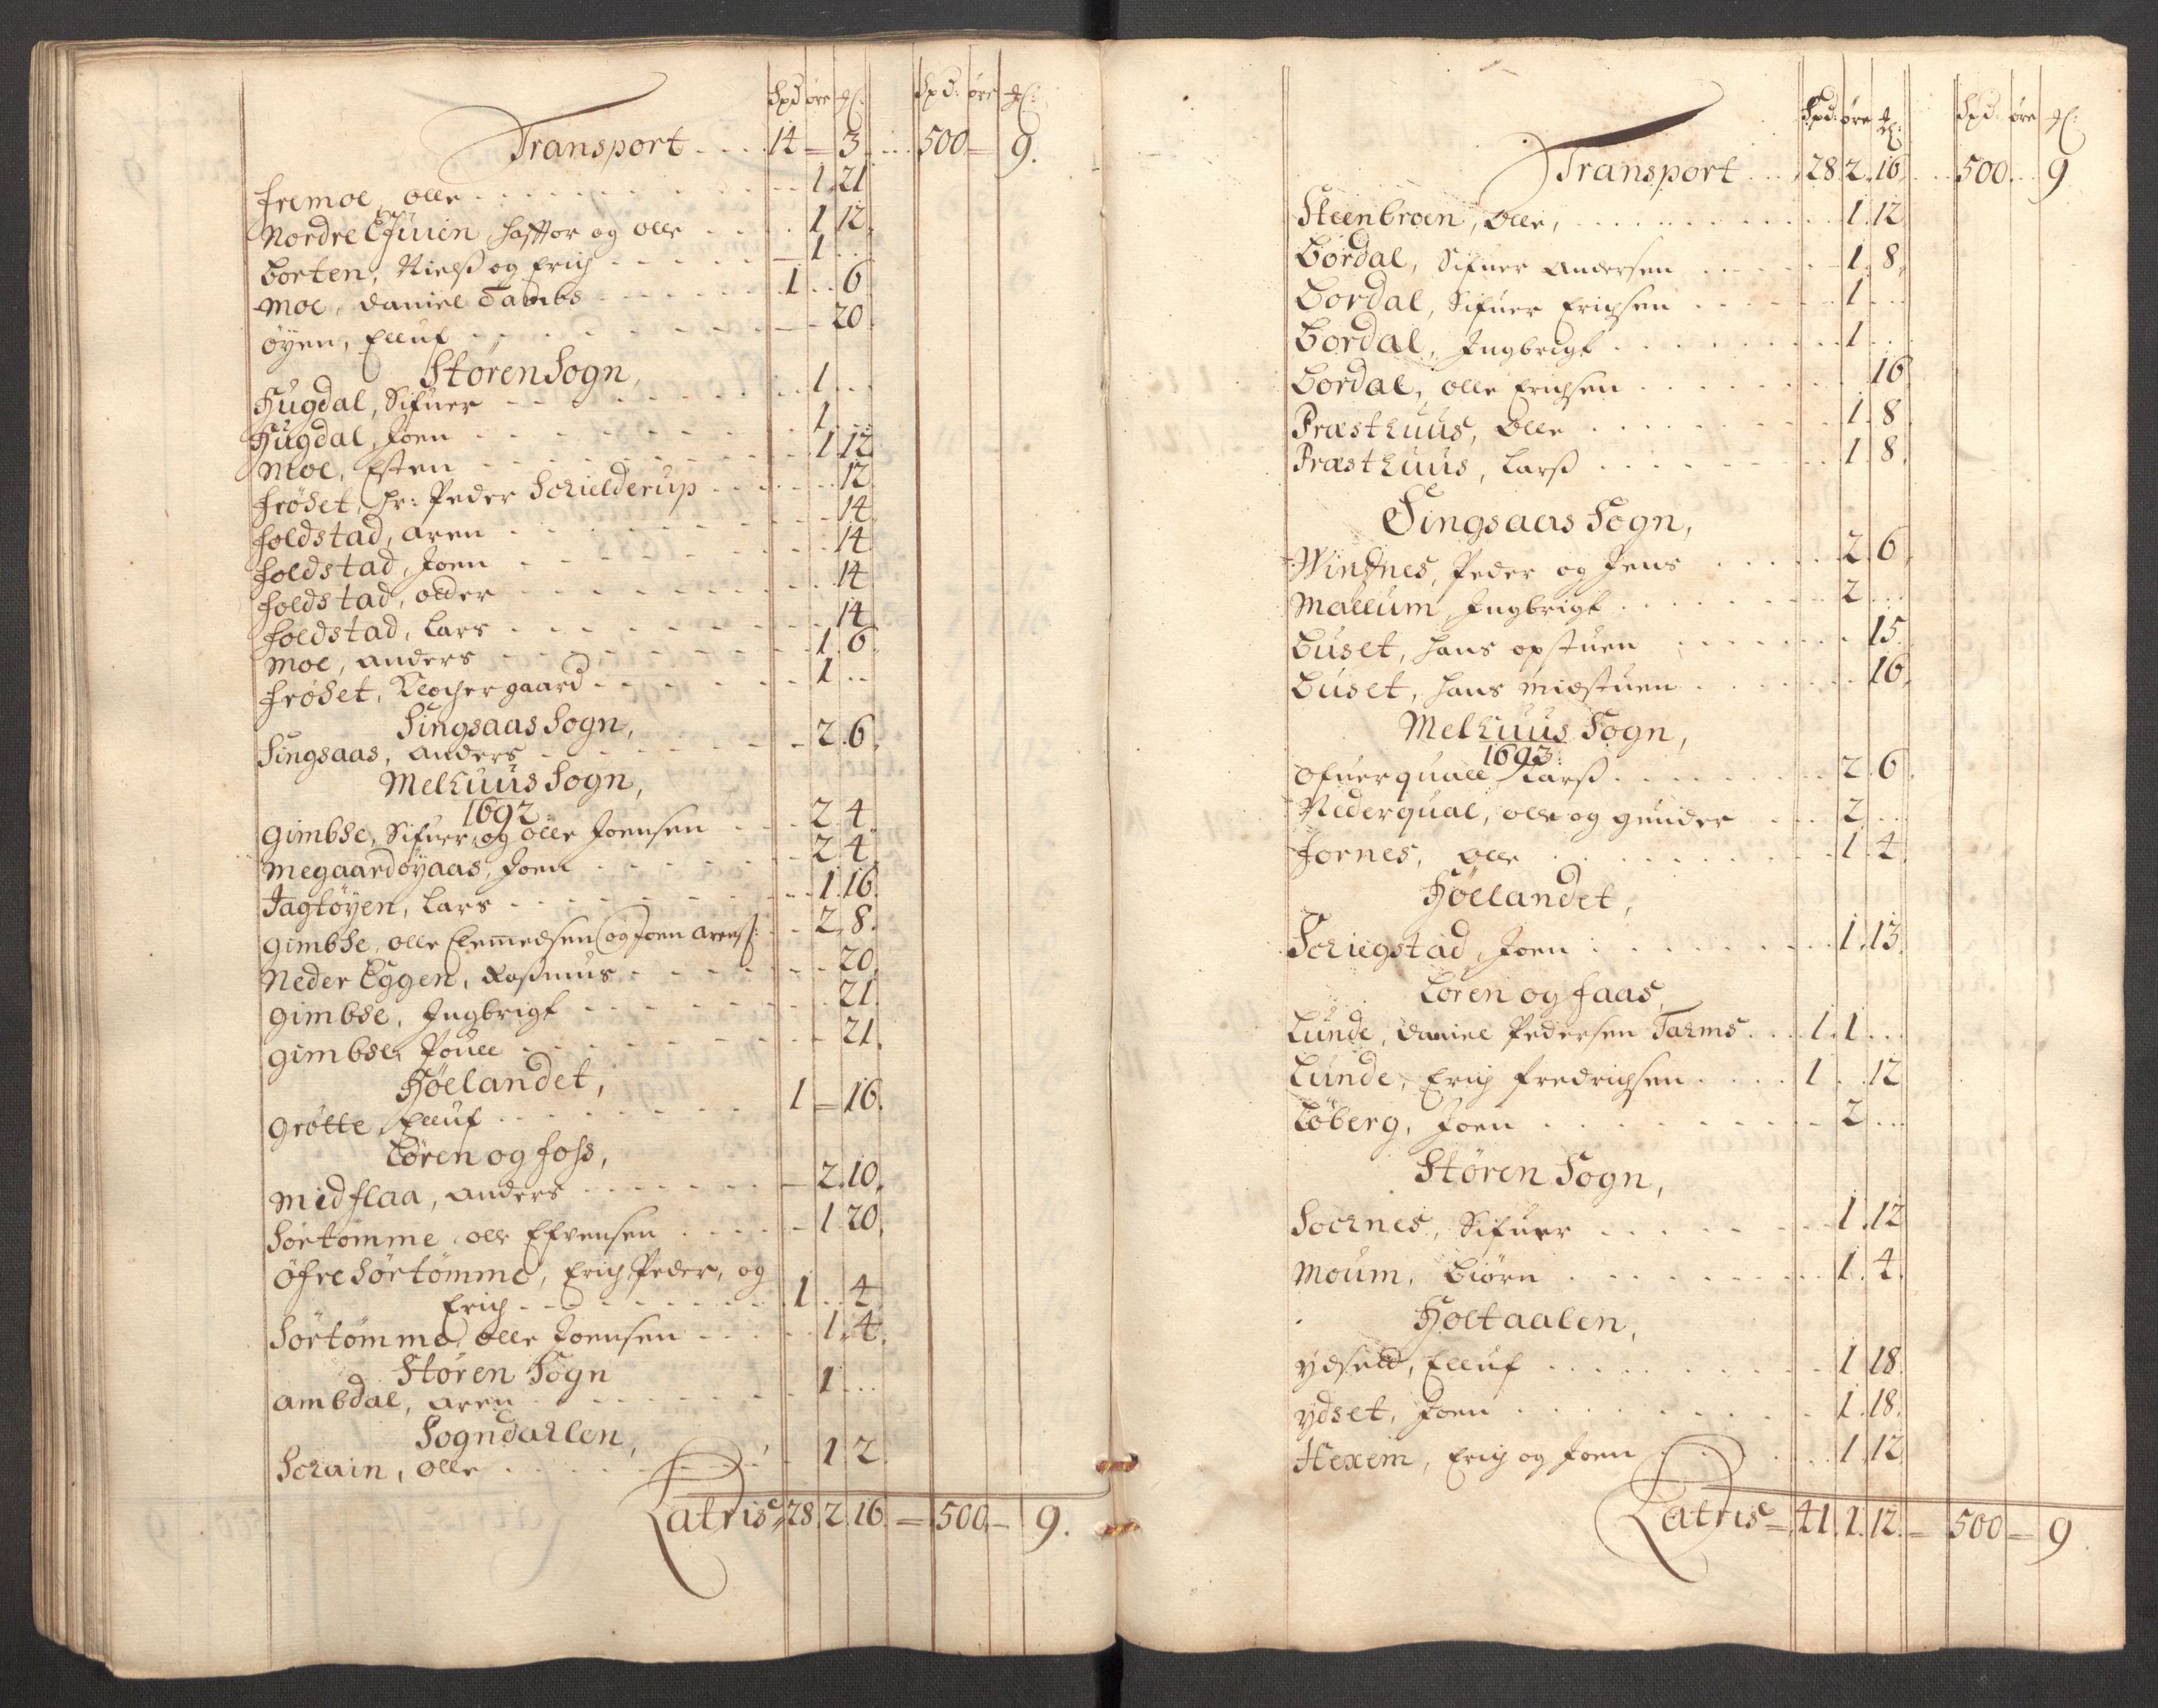 Spd øre
Spd: øre
Transport 14 – 3 500 – 9.
fremoe, olle 1 21
Nordre og olle 1 12.
Borten, Nielß og Erich 1
Moe, Daniel Tambs 1 6
öyen, Elluf 20
Støren Sogn,
Hugdal, Sifuer 1
Hugdal, Joen 1
Moe, Esten 1 12
fröset, Hr: Peder Schielderup 12
foldstad, aren 14
foldstad, Joen 14
foldstad, older 14
foldstad, Lars 14
Moe, anders 1 6
fröset, Klochergaard 1
Singsaas Sogn,
Singsaas, anders 2 6.
Melhuus Sogn,
1692
gimbse, Sifuer og olle Joensen 2 4
Megaardöyaas, Joen 2 4
Jagtöyen, Lars 1 16
gimbse, olle Clemedsen og Joen arens: 2 8.
Neder Eggen, Rasmus 20
gimbse, Ingbrigt 21
gimbse, Pouel 21.
Höelandet,
grötte, Elluf 1 – 16.
Lören og foss,
Midflaa, anders 2 10.
Sörtömme, olle Efvensen 1 20
Öfre Sörtömme, Erich, Peder, og
Erich 1 4
Sörtömme, olle Joensen 1 4.
Støren Sogn
ambdal, aren 1
Sogndahlen,
Schain, olle 1 2.
Latris 28. 2. 16. – 500 – 9.
Spd: øre
Spd øre
Transport 28. 2. 16. 500 9
Steenbroen, olle, 1 12
Bordal, Sifuer andersen 1. 8.
Bordal, Sifuer Erichsen 1
Bordal, Ingbrigt 1
Bordal, olle Erichsen 16
Præsthuus, olle 1 8
Præsthuus, Larß 1 8.
Singsaas Sogn,
Winsnes, Peder og Jens 2 6.
Mallum, Ingbrigt 2
Buset, Hans opstuen 15.
Buset, Hans midstuen 16.
Melhuus Sogn,
1693:
ofuerquall, Larß 2 6.
Nederqual, olle og gunder 2
Fornes, olle 1 4.
Höelandet,
Schiegstad, Joen 1 13.
Loren og faas,
Lunde, Daniel Pedersen Tarms 1. 1
Lunde, Erich fredrichsen 1 12
Löberg, Joen 2
Støren Sogn,
Soknes, Sifuer 1. 12
Moum, Biörn 1. 4.
Holtaalen,
ydset, Elluf 1 18.
ydset, Joen 1. 18.
Hexem, Erich og Joen 1 12
Latris 41. 1. 12. – 500 – 9